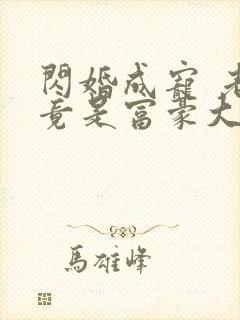 閃婚成寵 老
竟是富豪大
馬雄峰